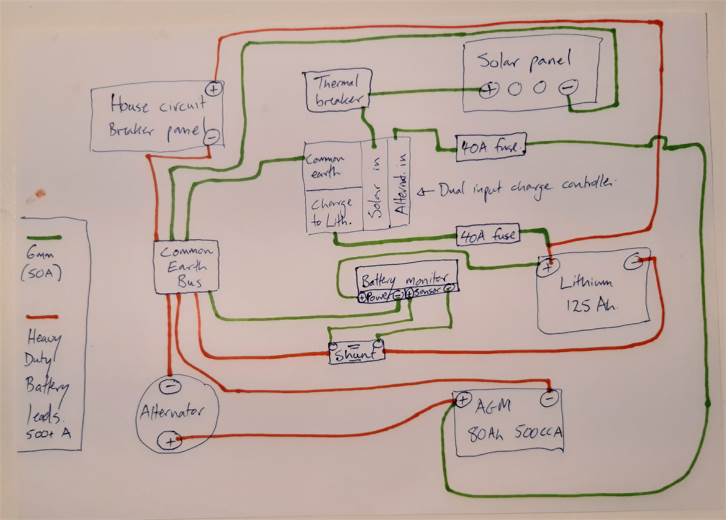 Solar panel
+ −
Thermal
breaker
+
House circuit
Breaker panel
−
40A fuse.
Common
earth
Solar in
Alternat. in
← Dual input charge controller.
Charge
to Lith.
40A fuse
6mm
(50A)
Common
Earth
Bus
Battery monitor
+ Power − + Sensor −
+ −
Lithium
125 Ah
Shunt
Heavy
Duty
Battery
leads.
500+ A
−
Alternator
+
+ −
AGM
80Ah 500CCA